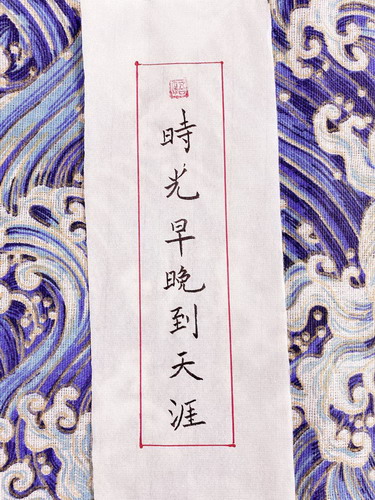 時光早晚到天涯